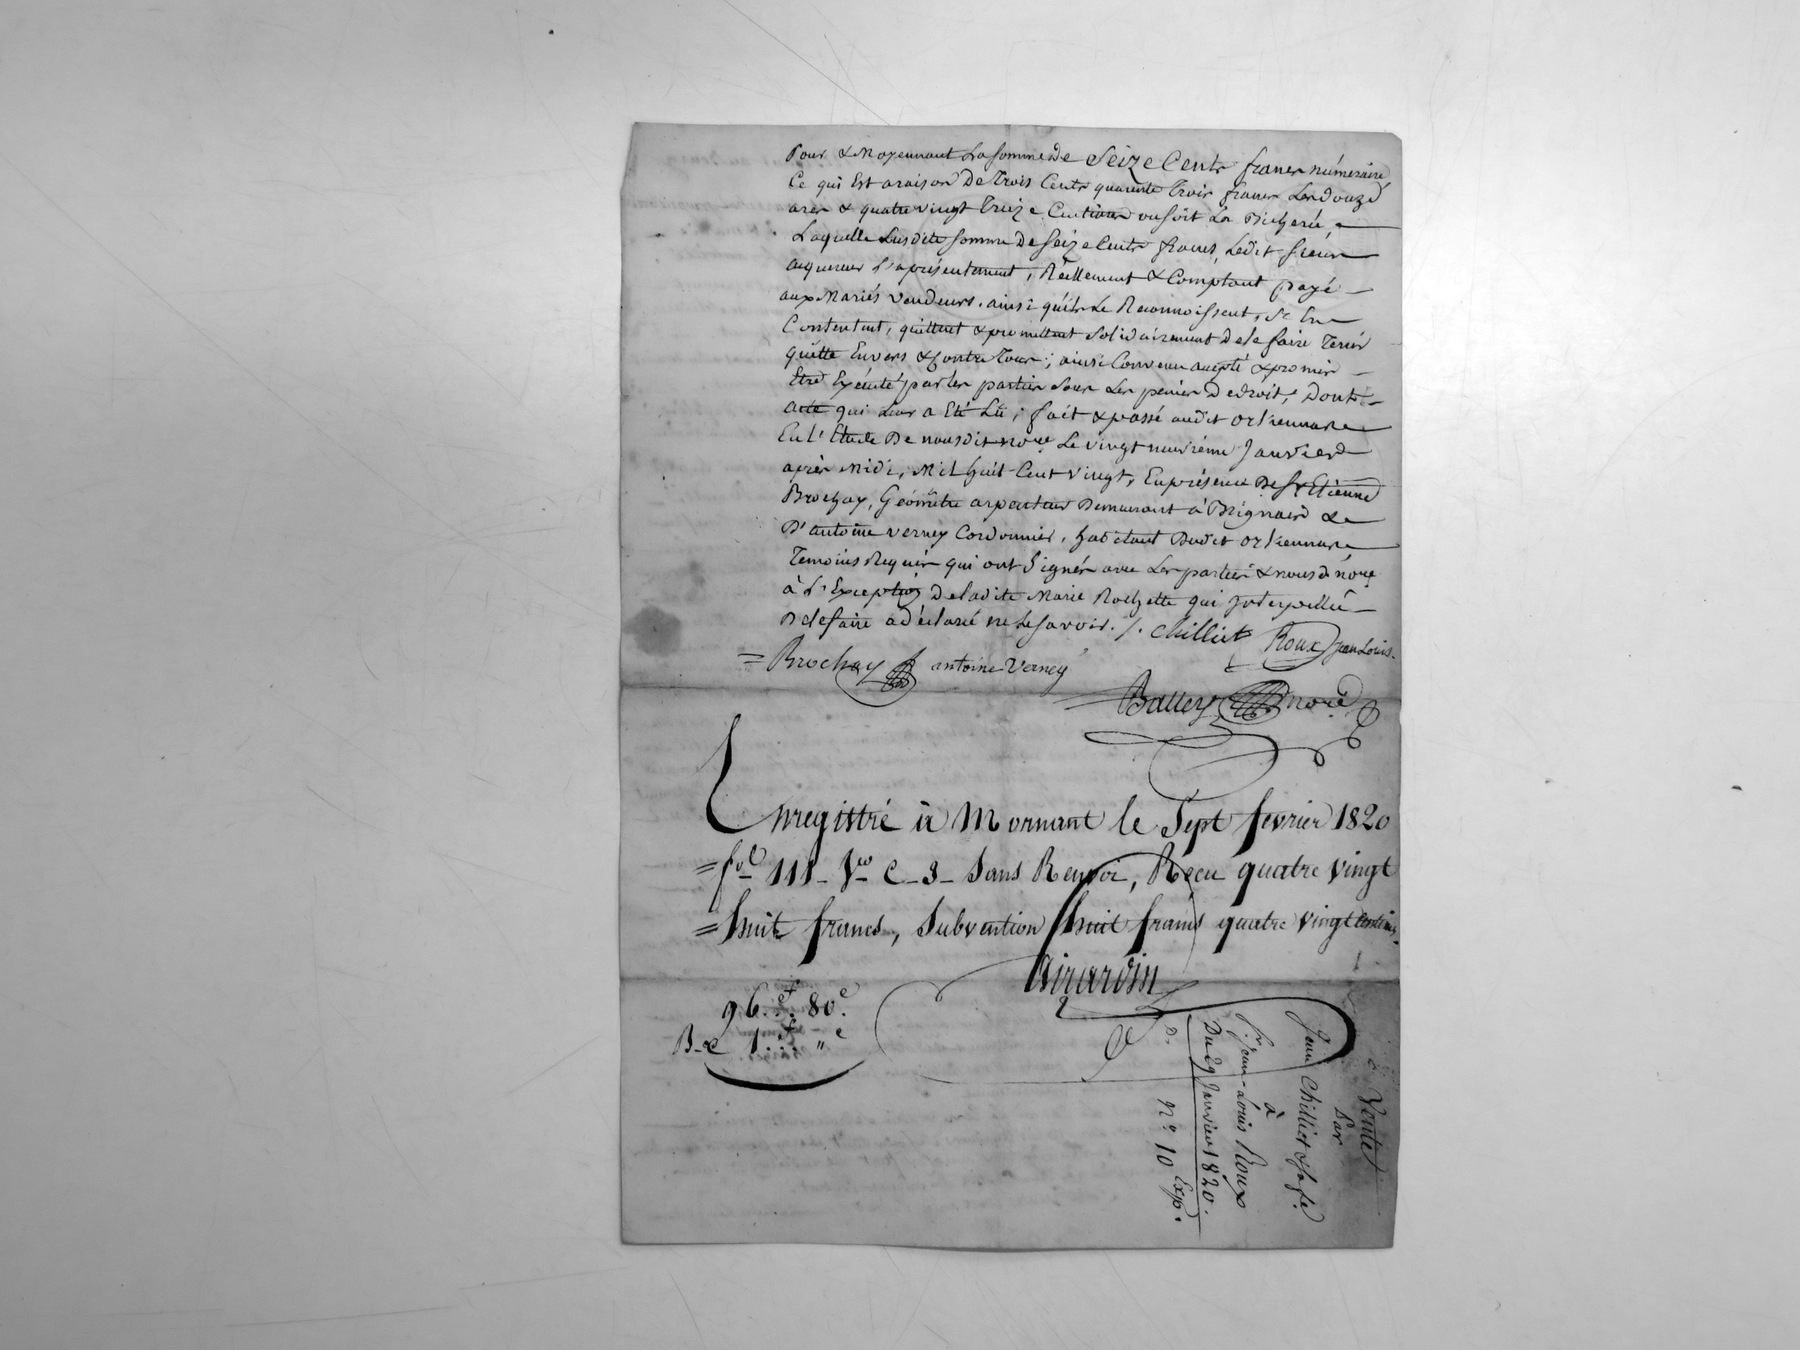 Pour & Moyennant La somme de Seize Cents francs numéraire
Ce qui Est araison De Trois Cents quarente Trois francs Les douze
ares & quatre vingt Treize Centiares ou soit La Bicherée,
Laquelle susdite somme De seize Cents francs, Ledit sieur
aquereur l'a présentement, Réellement & Comptant payé
aux Mariés vendeurs, ainsi qu'ils Le Reconnoissent, s'en
Contentent, quittent & promettent solidairement de le faire Tenir
quitte Envers & Contre Tous; ainsi Convenu accepté & promis
Etre Exécuté par les parties sous Les peines De droit, Dont
acte qui Leur a Eté Lû; fait & passé audit Orliennare
En l'Etude De nous dit nore. Le vingt neuvième Janvier
après Midi, Mil huit Cent vingt, En présence De Sr Etienne
Brochay, Géomêtre arpenteur Demeurant à Brignaire &
D'antoine verney Cordonnier, habitant Dudit Orliennare
Temoins Requis qui ont signés avec Les parties & nous d. nore.
à L'Exception De ladite Marie Rochette qui Interpellée
De le faire a déclaré ne Le savoir. /. Chilliet Roux Jean Louis.
= Brochay antoine Verney
Ballery nore.
Enregistré à Mornant le Sept février 1820
= fol 111 - Vo C - 3 - Sans Renvoi, Reçu quatre vingt
= huit francs, Subvention huit francs quatre vingt centimes.
Girardin
96.f. 80c.
B. & 1.f. "c
Vente
Par
Jean Chilliet & sa fe.
à
Sr. Jean-Louis Roux
Du 29 Janvier 1820.
D. no. 10 Exp.